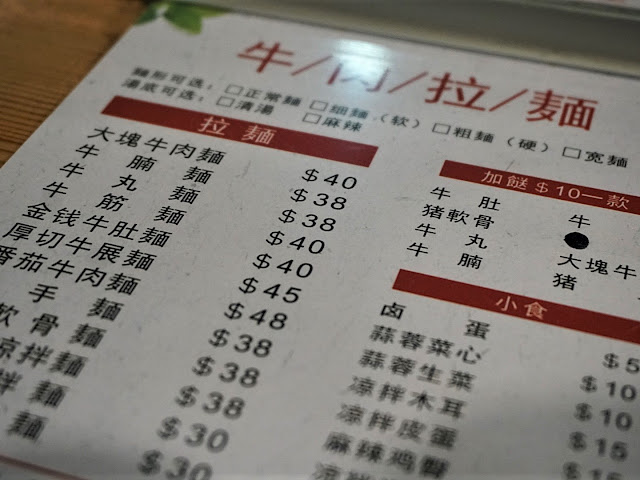 牛/肉/拉/麵
麵形可选：□正常麵 □细麵（软）□粗麵（硬）□宽麵
湯底可选：□清湯 □麻辣
拉麵
大塊牛肉麵 $40
牛腩麵 $38
牛丸麵 $38
牛筋麵 $40
金钱牛肚麵 $40
厚切牛展麵 $45
番茄牛肉麵 $48
手麵 $38
软骨麵 $38
凉拌麵 $38
拌麵 $30
麵 $30
加餸$10一款
牛肚 牛
猪軟骨
牛丸 大塊牛
牛腩 猪
小食
卤蛋 $5
蒜蓉菜心 $10
蒜蓉生菜 $10
凉拌木耳 $15
凉拌皮蛋 $15
麻辣鸡